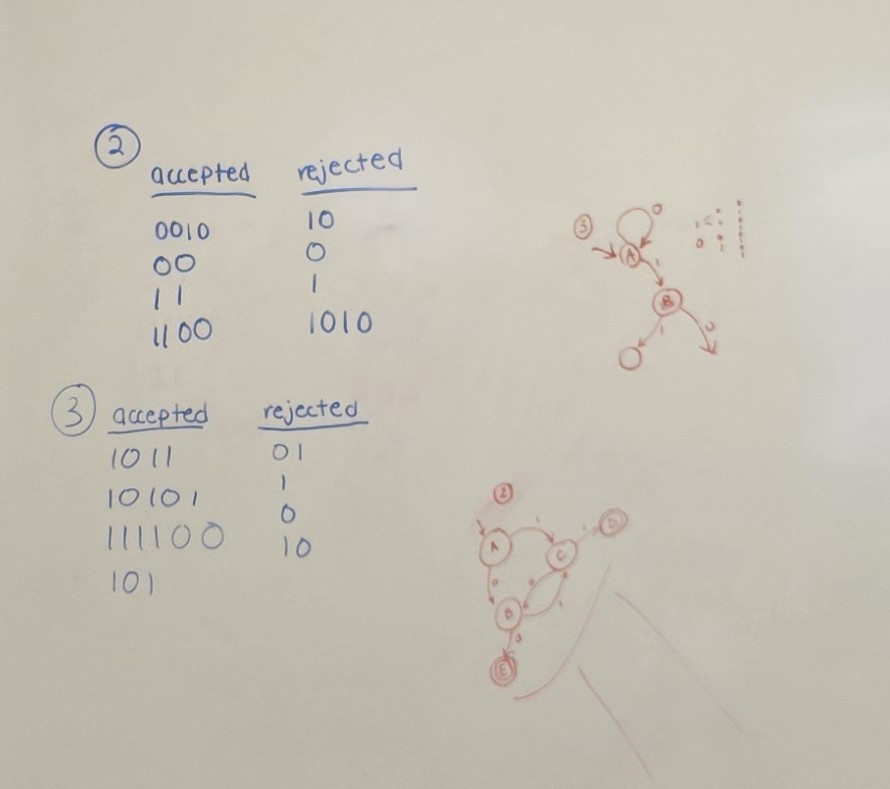 ②
accepted rejected
0010 10
00 0
11 1
1100 1010
③
accepted rejected
1011 01
10101 1
111100 0
101 10
③
0
A
1
B
1 0
②
A 1 C 1 D
0 0 1
B
0
E